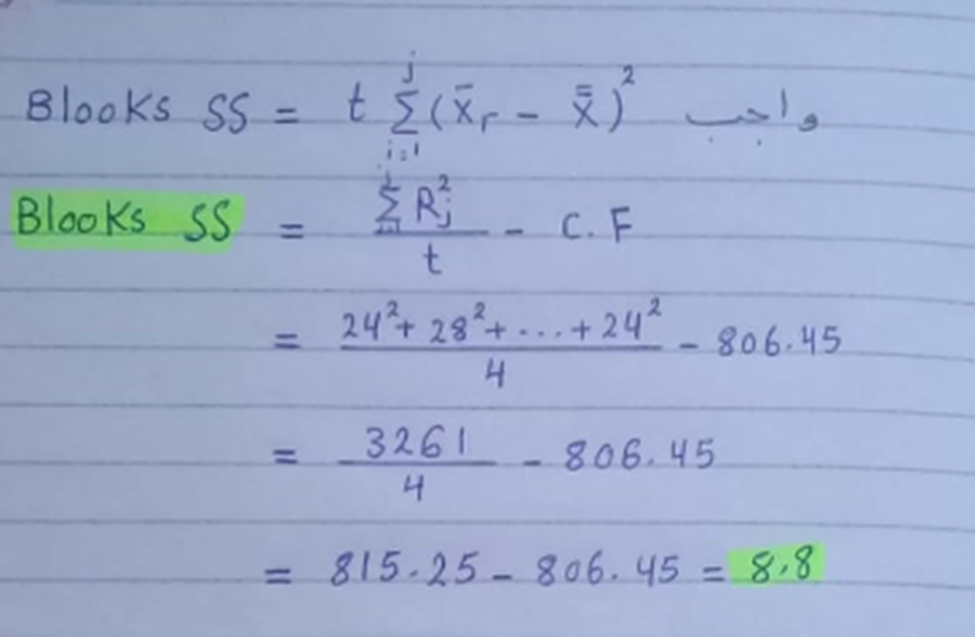 Blooks SS = t Σ_{i=1}^{j} (x̄_r - x̿)² واجب
Blooks SS = ΣR_j² / t - C.F
= 24² + 28² + ... + 24² / 4 - 806.45
= 3261 / 4 - 806.45
= 815.25 - 806.45 = 8.8